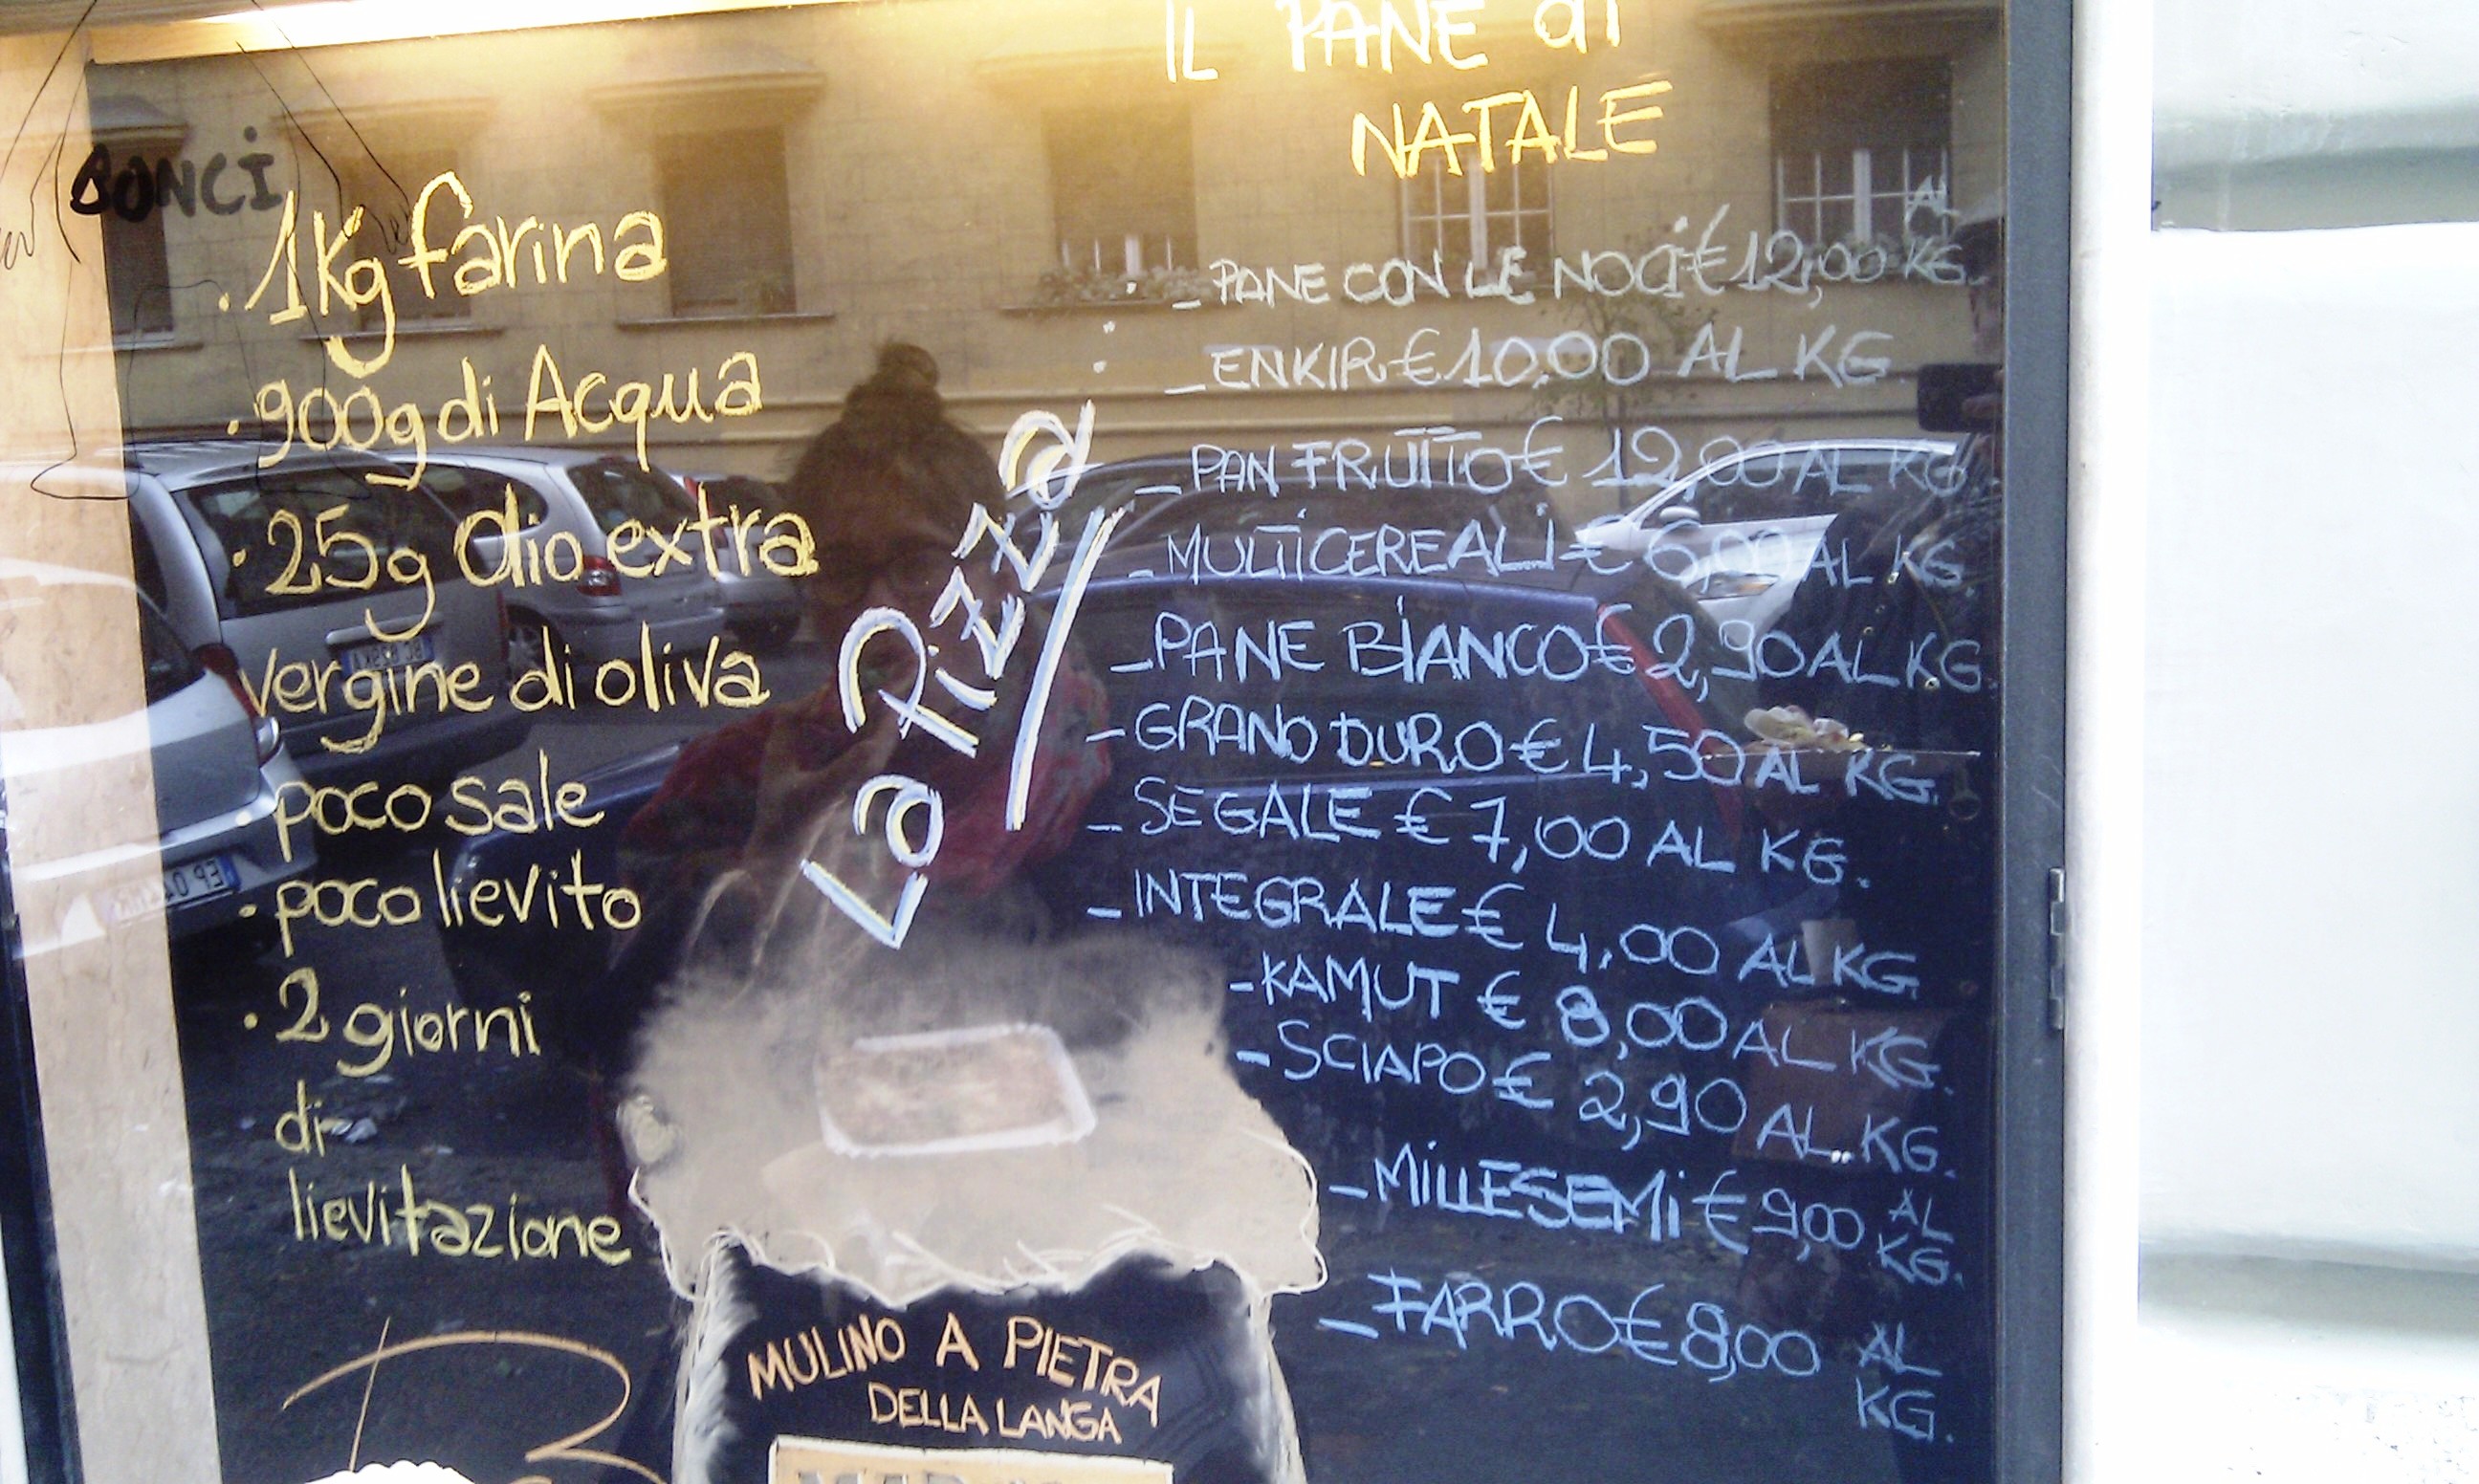 BONCI
· 1Kg farina
· 900g di Acqua
· 25g olio extra
vergine di oliva
· poco sale
· poco lievito
· 2 giorni
di
lievitazione
La Pizza
MULINO A PIETRA
DELLA LANGA
IL PANE di
NATALE
- PANE CON LE NOCI € 12,00 AL KG.
- ENKIR € 10,00 AL KG.
- PAN FRUTTO € 12,00 AL KG
- MULTICEREALI € 6,00 AL KG
- PANE BIANCO € 2,90 AL KG.
- GRANO DURO € 4,50 AL KG.
- SEGALE € 7,00 AL KG.
- INTEGRALE € 4,00 AL KG.
- KAMUT € 8,00 AL KG.
- SCIAPO € 2,90 AL KG.
- MILLESEMI € 9,00 AL KG.
- FARRO € 8,00 AL
KG.